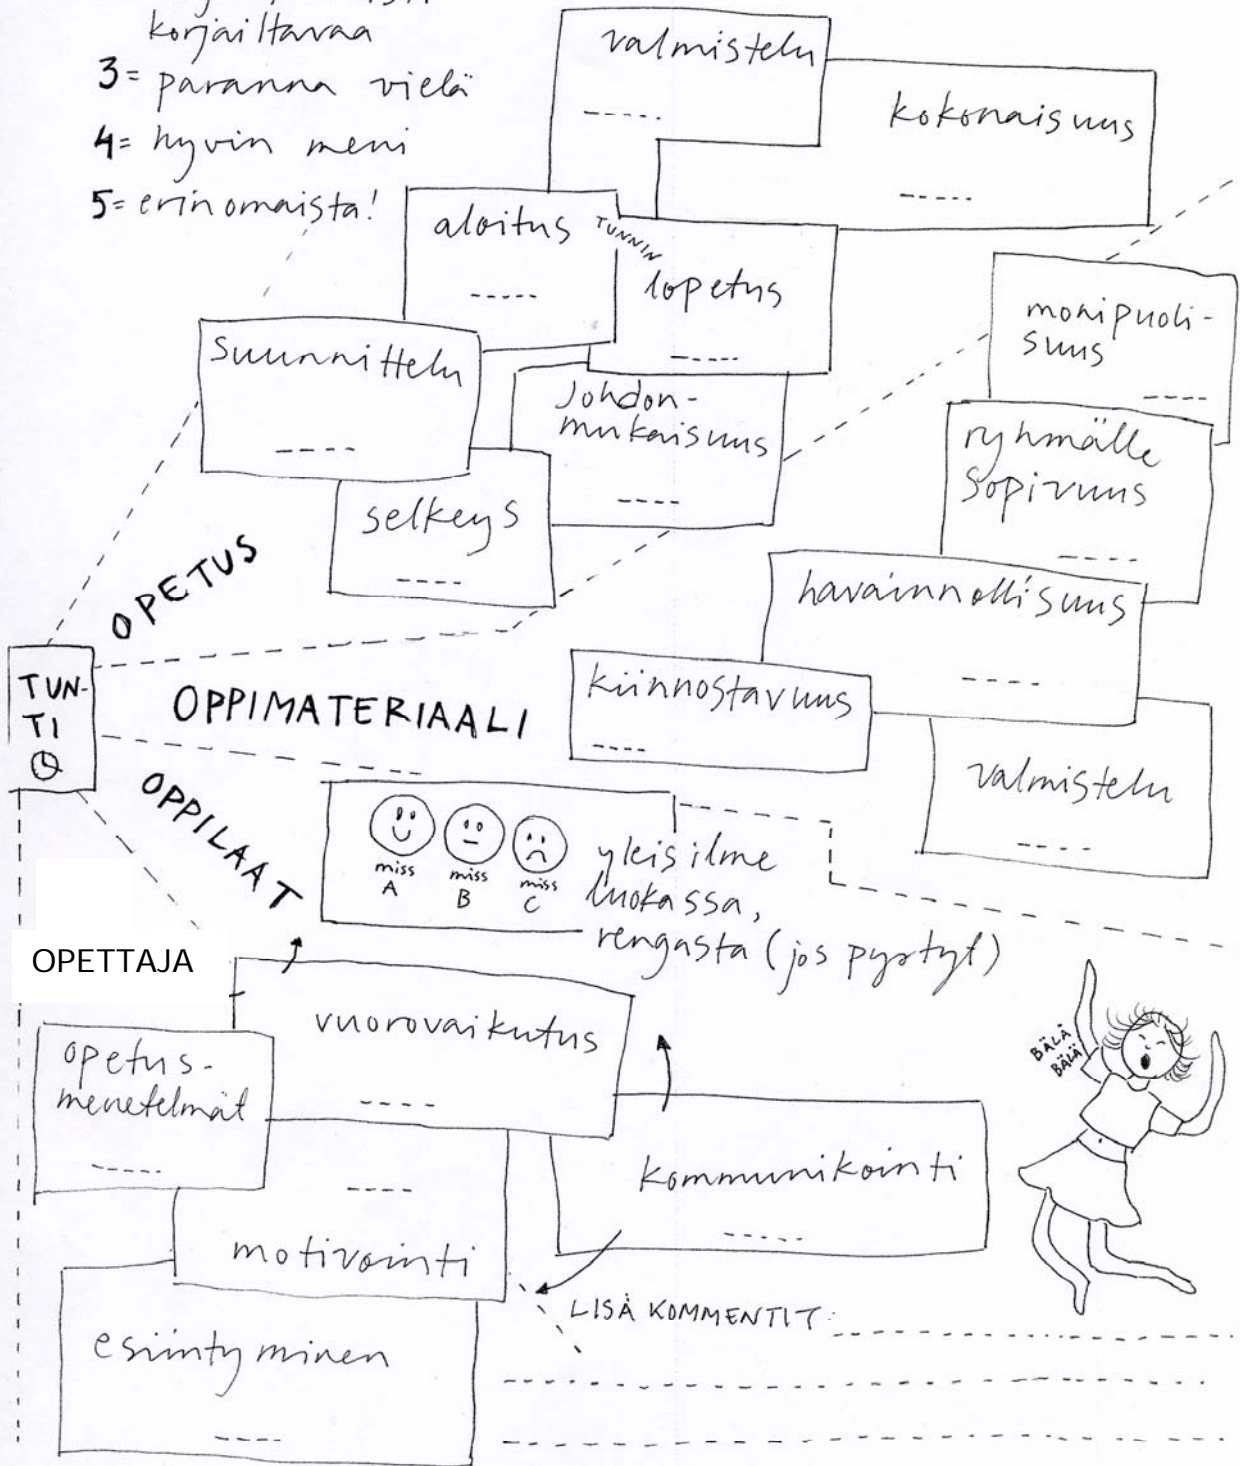 korjailtavaa
3= paranna vielä
4= hyvin meni
5= erinomaista!
valmistelu
kokonaisuus
aloitus
TUNNIN
lopetus
suunnittelu
Johdon-
mukaisuus
selkeys
monipuoli-
suus
ryhmälle
sopivuus
havainnollisuus
kiinnostavuus
valmistelu
OPETUS
TUN-
TI
OPPIMATERIAALI
OPPILAAT
miss
A
miss
B
miss
C
yleisilme
luokassa,
rengasta (jos pystyt)
OPETTAJA
vuorovaikutus
opetus-
menetelmät
kommunikointi
motivointi
esiintyminen
BÄLÄ
BÄLÄ
LISÄ KOMMENTIT: